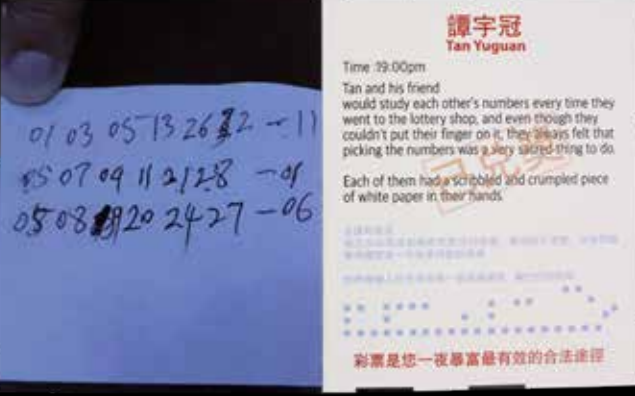 01 03 05 13 26 32 - 11
05 07 09 11 21 28 - 01
05 08 19 20 24 27 - 06
譚宇冠
Tan Yuguan
Time :19:00pm
Tan and his friend
would study each other's numbers every time they
went to the lottery shop, and even though they
couldn't put their finger on it, they always felt that
picking the numbers was a very sacred thing to do.
Each of them had a scribbled and crumpled piece
of white paper in their hands.
彩票是您一夜暴富最有效的合法途徑